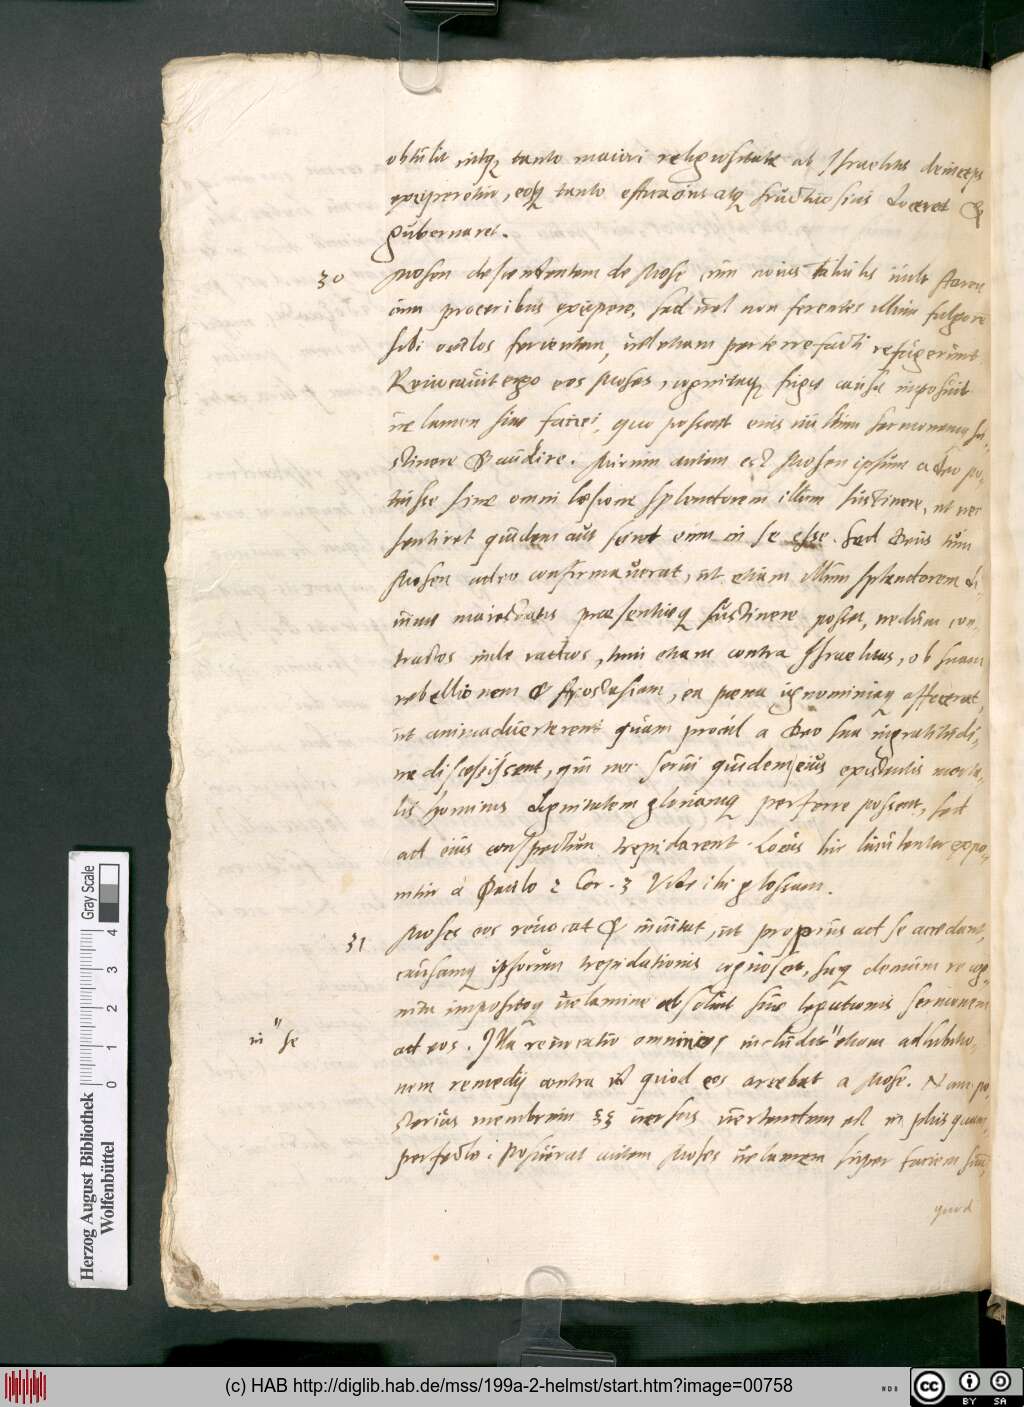 obtulit, utq́; tanto maiori religiositate ab Israelitis deinceps
exciperetur, eosq́; tanto efficacius atq́; fructuosius doceret &
gubernaret.
30 Mosen descendentem de Mose, cum novis tabulis
cum proceribus excipere, sed vel non ferentes illum fulgore
sibi oculos ferientem, vel etiam perterrefacti refugerunt.
Revocavit ergo eos Moses, cognitaq́; fugæ causa imposuit
velamen suæ faciei, quo possent eius vultum sermonemq́; su-
stinere & audire. Mirum autem est Mosen ipsum a deo po-
tuisse sine omni læsione splendorem illum sustinere, ut nec
sentiret quidem aut sciret eum in se esse. Sed Deus tum
Mosen adeo confirmaverat, ut etiam illum splendorem di-
vinæ maiestatis præsentisq́; sustinere posset, nedum con-
tractos inde radios, tum etiam contra Israelitas, ob suam
rebellionem & Apostasiam, ea pœna ignominiaq́; affecerat,
ut animadverterent quam procul a Deo sua ingratitudi-
ne discessissent, qui nec servi quidem eius existentis morta-
lis hominis dignitatem gloriamq́; perferre possent, sed
ad eius conspectum trepidarent. Locus hic luculenter expo-
nitur a Paulo 2 Cor. 3 Vide ibi glossam.
31 Moses eos revocat & invitat, ut propius ad se accedant,
causamq́; ipsorum trepidationis cognoscit, suaq́; demum recog-
nita impositoq́; velamine absolvit suæ legationis sermonem
in se
ad eos. Illa revocatio omnino includit" etiam adhibitio-
nem remedij contra id quod eos arcebat a Mose. Nam po-
sterius membrum 33 versus vertendum est in plusquam-
perfecto: Posuerat autem Moses velamen super faciem suā,
quod
Herzog August Bibliothek
Wolfenbüttel
0 1 2 3 4
Gray Scale
(c) HAB http://diglib.hab.de/mss/199a-2-helmst/start.htm?image=00758
cc BY SA